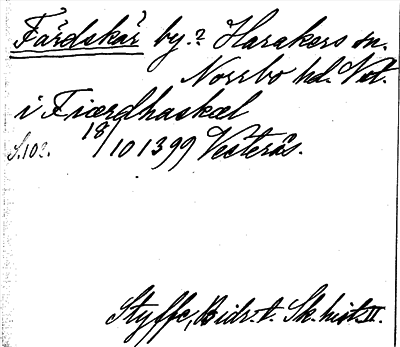 Färdskär by.? Harakers sn.
Norrbo hd. Vstm.
i Fiærdhaskæl
S. 102. 18/10 1399 Vesterås.
Styffe, Bidr. t. Sk. hist. II.